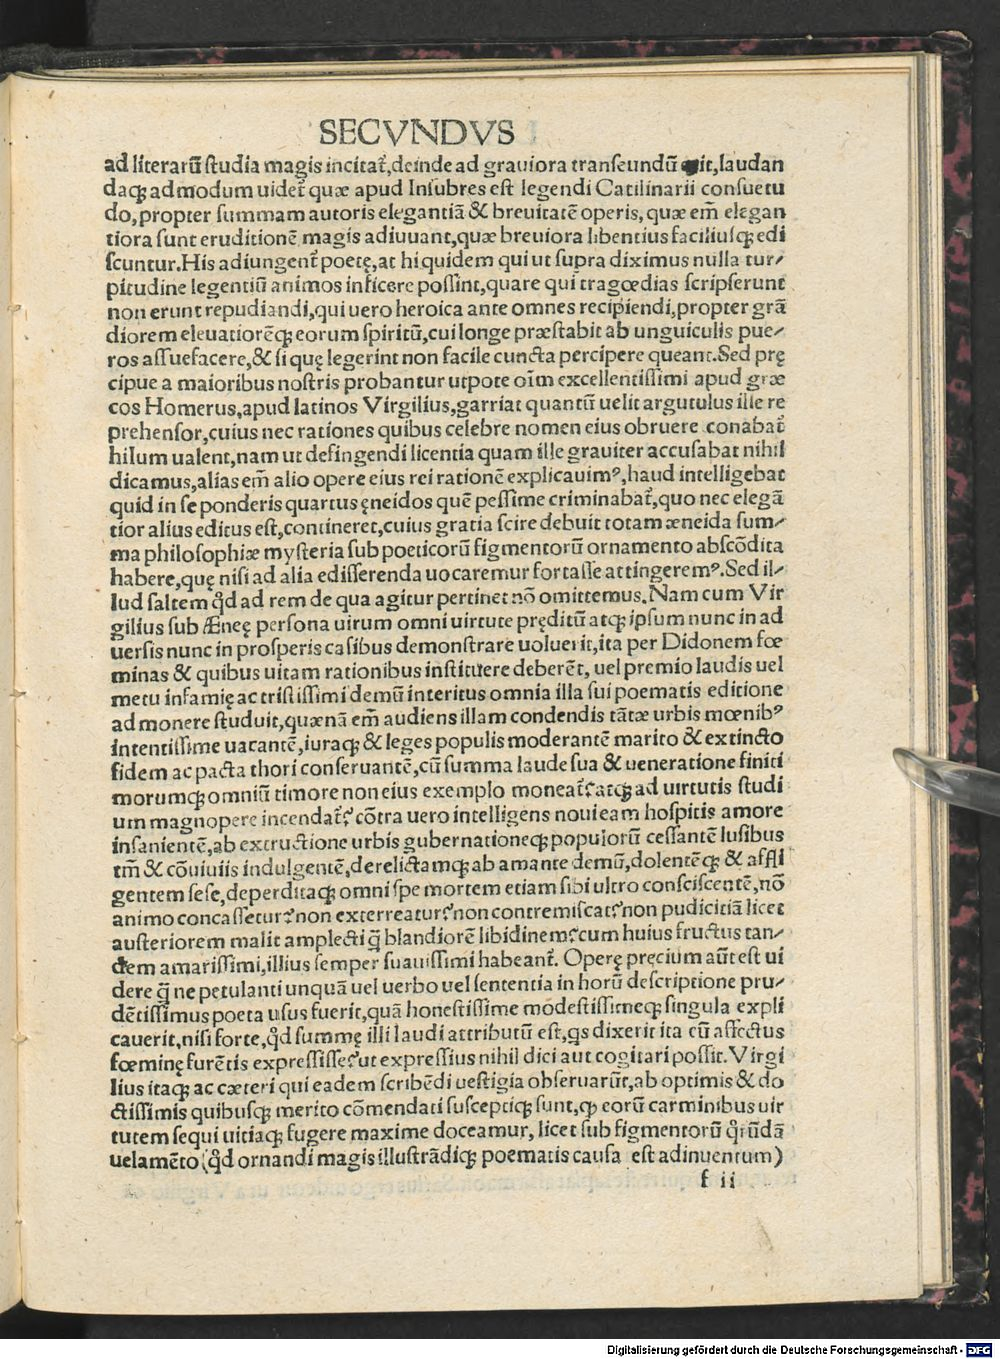 SECVNDVS
ad literarū ſtudia magis incitat̃,deinde ad grauiora tranſeundū ſit,laudan
daq; admodum uidet̃ quæ apud Inſubres eſt legendi Catilinarii conſuetu
do,propter ſummam autoris elegantiã & breuitatē operis, quæ em̄ elegan
tiora ſunt eruditionē magis adiuuant,quæ breuiora libentius faciliuſq; edi
ſcuntur.His adiungent̃ poetę,at hi quidem qui ut ſupra diximus nulla tur⸗
pitudine legentiū animos inficere poſſint,quare qui tragœdias ſcripſerunt
non erunt repudiandi,qui uero heroica ante omnes recipiendi,propter grã
diorem eleuatiorēq; eorum ſpiritū,cui longe præſtabit ab unguiculis pue⸗
ros aſſuefacere,& ſi quę legerint non facile cuncta percipere queant.Sed prę
cipue a maioribus noſtris probantur utpote oīm excellentiſſimi apud græ
cos Homerus,apud latinos Virgilius,garriat quantū uelit argutulus ille re
prehenſor,cuius nec rationes quibus celebre nomen eius obruere conabat̃
hilum ualent,nam ut defingendi licentia quam ille grauiter accuſabat nihil
dicamus,alias em̄ alio opere eius rei rationē explicauimꝰ,haud intelligebat
quid in ſe ponderis quartus ęneidos quē peſſime criminabat̃,quo nec elegã
tior alius editus eſt,contineret,cuius gratia ſcire debuit totam æneida ſum⸗
ma philoſophiæ myſteria ſub poeticorū figmentorū ornamento abſcōdita
habere,quę niſi ad alia edifferenda uocaremur fortaſſe attingeremꝰ.Sed il⸗
lud ſaltem qd̃ ad rem de qua agitur pertinet nō omittemus.Nam cum Vir
gilius ſub Æneę perſona uirum omni uirtute pręditū atq; ipſum nunc in ad
uerſis nunc in proſperis caſibus demonſtrare uoluerit,ita per Didonem fœ
minas & quibus uitam rationibus inſtituere deberēt, uel premio laudis uel
metu infamię ac triſtiſſimi demū interitus omnia illa ſui poematis editione
admonere ſtuduit,quænã em̄ audiens illam condendis tãtæ urbis mœnibꝰ
intentiſſime uacantē,iuraq; & leges populis moderantē marito & extincto
fidem ac pacta thori conſeruantē,cū ſumma laude ſua & ueneratione finiti
morumq; omniū timore non eius exemplo moneat̃? atq; ad uirtutis ſtudi
um magnopere incendat̃? cōtra uero intelligens noui eam hoſpitis amore
inſanientē,ab extructione urbis gubernationeq; populorū ceſſantē luſibus
tm̄ & cōuiuiis indulgentē,derelictamq; ab amante demū,dolentēq; & affli
gentem ſeſe,deperditaq; omni ſpe mortem etiam ſibi ultro conſciſcentē,nō
animo concaſſetur?non exterreatur?non contremiſcat?non pudicitiã licet
auſteriorem malit amplecti q̃ blandiorē libidinem?cum huius fructus tan⸗
dem amariſſimi,illius ſemper ſuauiſſimi habeant̃. Operę pręcium aūt eſt ui
dere q̃ ne petulanti unquã uel uerbo uel ſententia in horū deſcriptione pru⸗
dētiſſimus poeta uſus fuerit,quã honeſtiſſime modeſtiſſimeq; ſingula expli
cauerit,niſi forte,qd̃ ſummę illi laudi attributū eſt,qs dixerit ita eū affectus
fœminę furētis expreſſiſſe?ut expreſſius nihil dici aut cogitari poſſit.Virgi
lius itaq; ac cæteri qui eadem ſcribēdi ueſtigia obſeruarūt,ab optimis & do
ctiſſimis quibuſq; merito cōmendati ſuſceptiq; ſunt,ꝙ eorū carminibus uir
tutem ſequi uitiaq; fugere maxime doceamur, licet ſub figmentorū qr̃ūdã
uelamēto(qd̃ ornandi magis illuſtrãdiq; poematis cauſa eſt adinuentum)
f ii
Digitalisierung gefördert durch die Deutsche Forschungsgemeinschaft - DFG